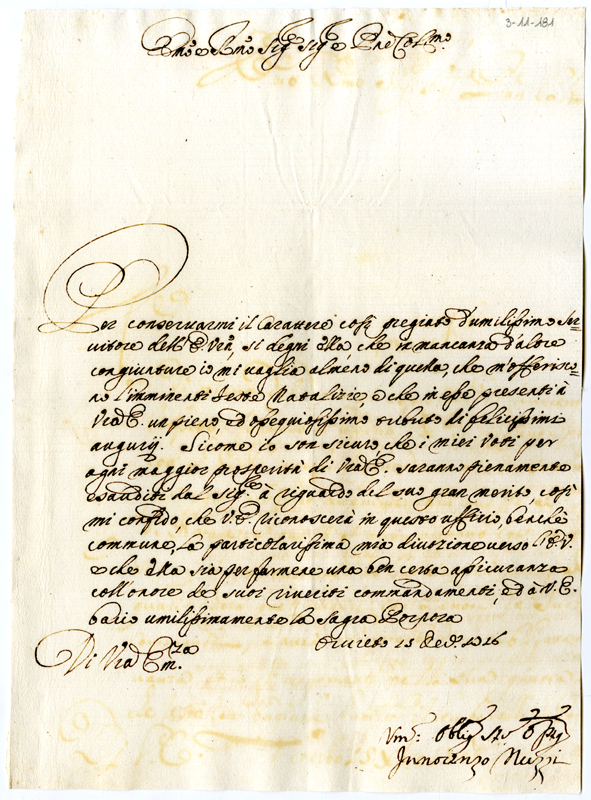 3-11-181
Em.o e R.mo Sig.r Sig.r e P.ne Col.mo
Per conservarmi il Carattere così pregiato d'umilissimo Ser=
vitore dell' E. Vra, si degni ella che in mancanza d'altre
congiunture io mi vaglia almeno di quella, che m'offerisco=
no l'imminenti feste Natalizie, e che in esse presenti à
Vra E. un pieno, ed ossequiosissimo tributo di felicissimi
augurij. Sicome io son sicuro che i miei voti per
ogni maggior prosperità di Vra E. saranno pienamente
esauditi dal Sig.re à riguardo del suo gran merito, così
mi confido, che V. E. riconoscerà in questo uffizio, benchè
commune, la particolarissima mia divozione verso l'E. V.
e che ella sia per farmene una ben certa assicuranza
coll'onore de suoi riveriti commandamenti, ed à V. E.
bacio umilissimamente la Sagra Porpora
Orvieto 15 Dec.e 1716
Di Vra Em.za
Um.o Obblig.
Innocenzo Nuzzi